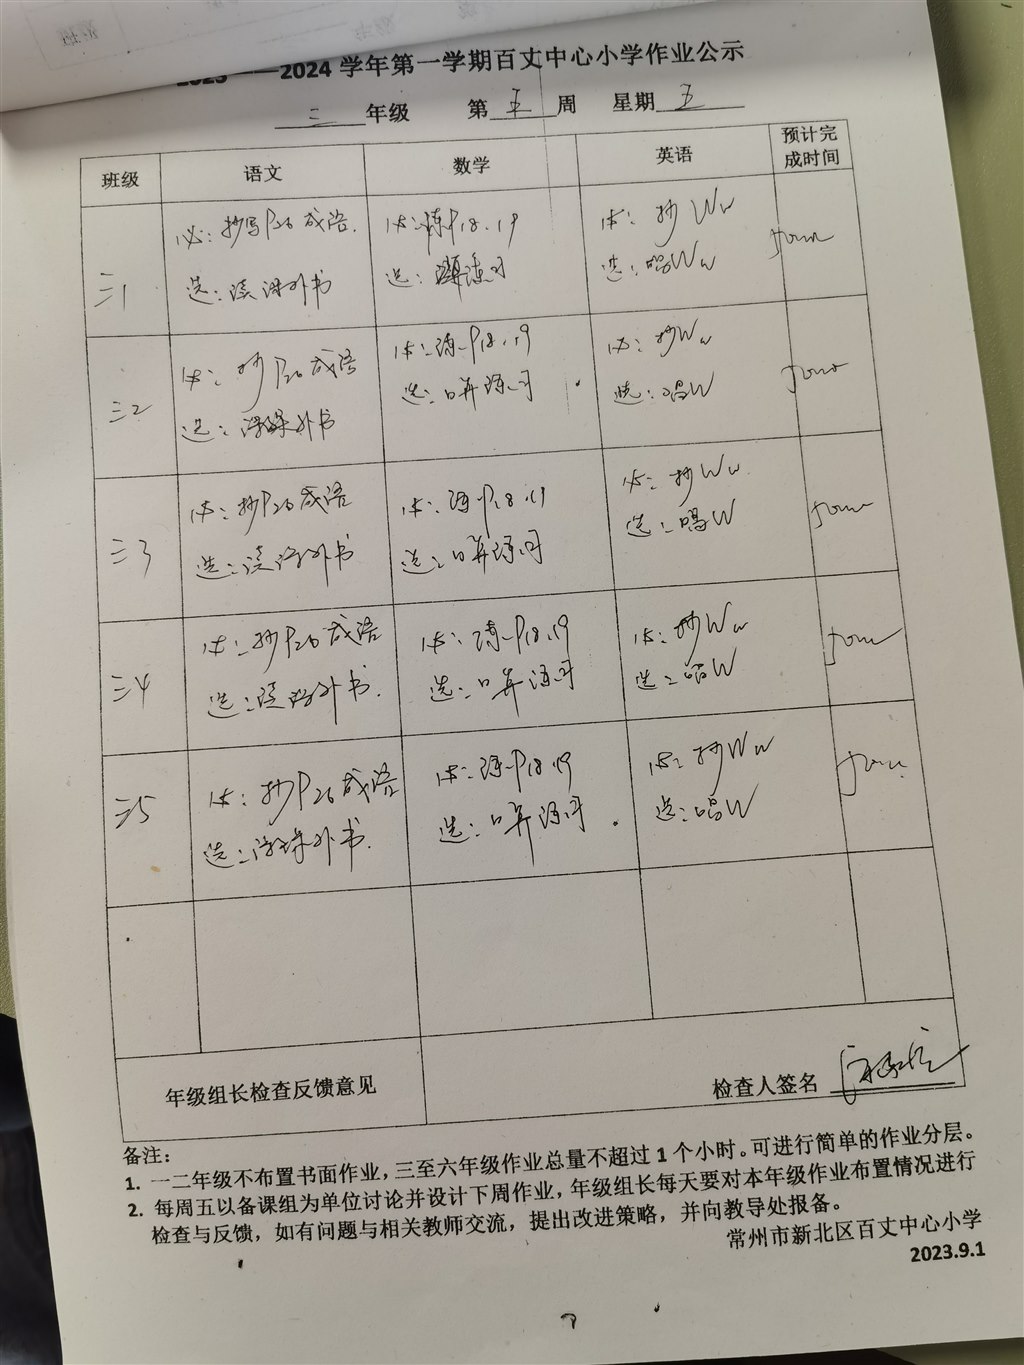 2023——2024 学年第一学期百丈中心小学作业公示
三 年级 第 五 周 星期 五
班级 语文 数学 英语 预计完成时间
三1
必：抄写P26成语.
选：读课外书
必：练P18.19
选：口算练习
必：抄Uu
选：唱Uu
三2
必：抄P26成语
选：读课外书
必：练P18.19
选：口算练习
必：抄Uu
选：唱U
三3
必：抄P26成语
选：读课外书
必：练P18.19
选：口算练习
必：抄Uu
选：唱U
三4
必：抄P26成语
选：读课外书.
必：练P18.19
选：口算练习
必：抄Uu
选：唱U
三5
必：抄P26成语
选：读课外书.
必：练P18.19
选：口算练习.
必：抄Uu
选：唱U
年级组长检查反馈意见
检查人签名
备注：
1. 一二年级不布置书面作业，三至六年级作业总量不超过 1 个小时。可进行简单的作业分层。
2. 每周五以备课组为单位讨论并设计下周作业，年级组长每天要对本年级作业布置情况进行
检查与反馈，如有问题与相关教师交流，提出改进策略，并向教导处报备。
常州市新北区百丈中心小学
2023.9.1